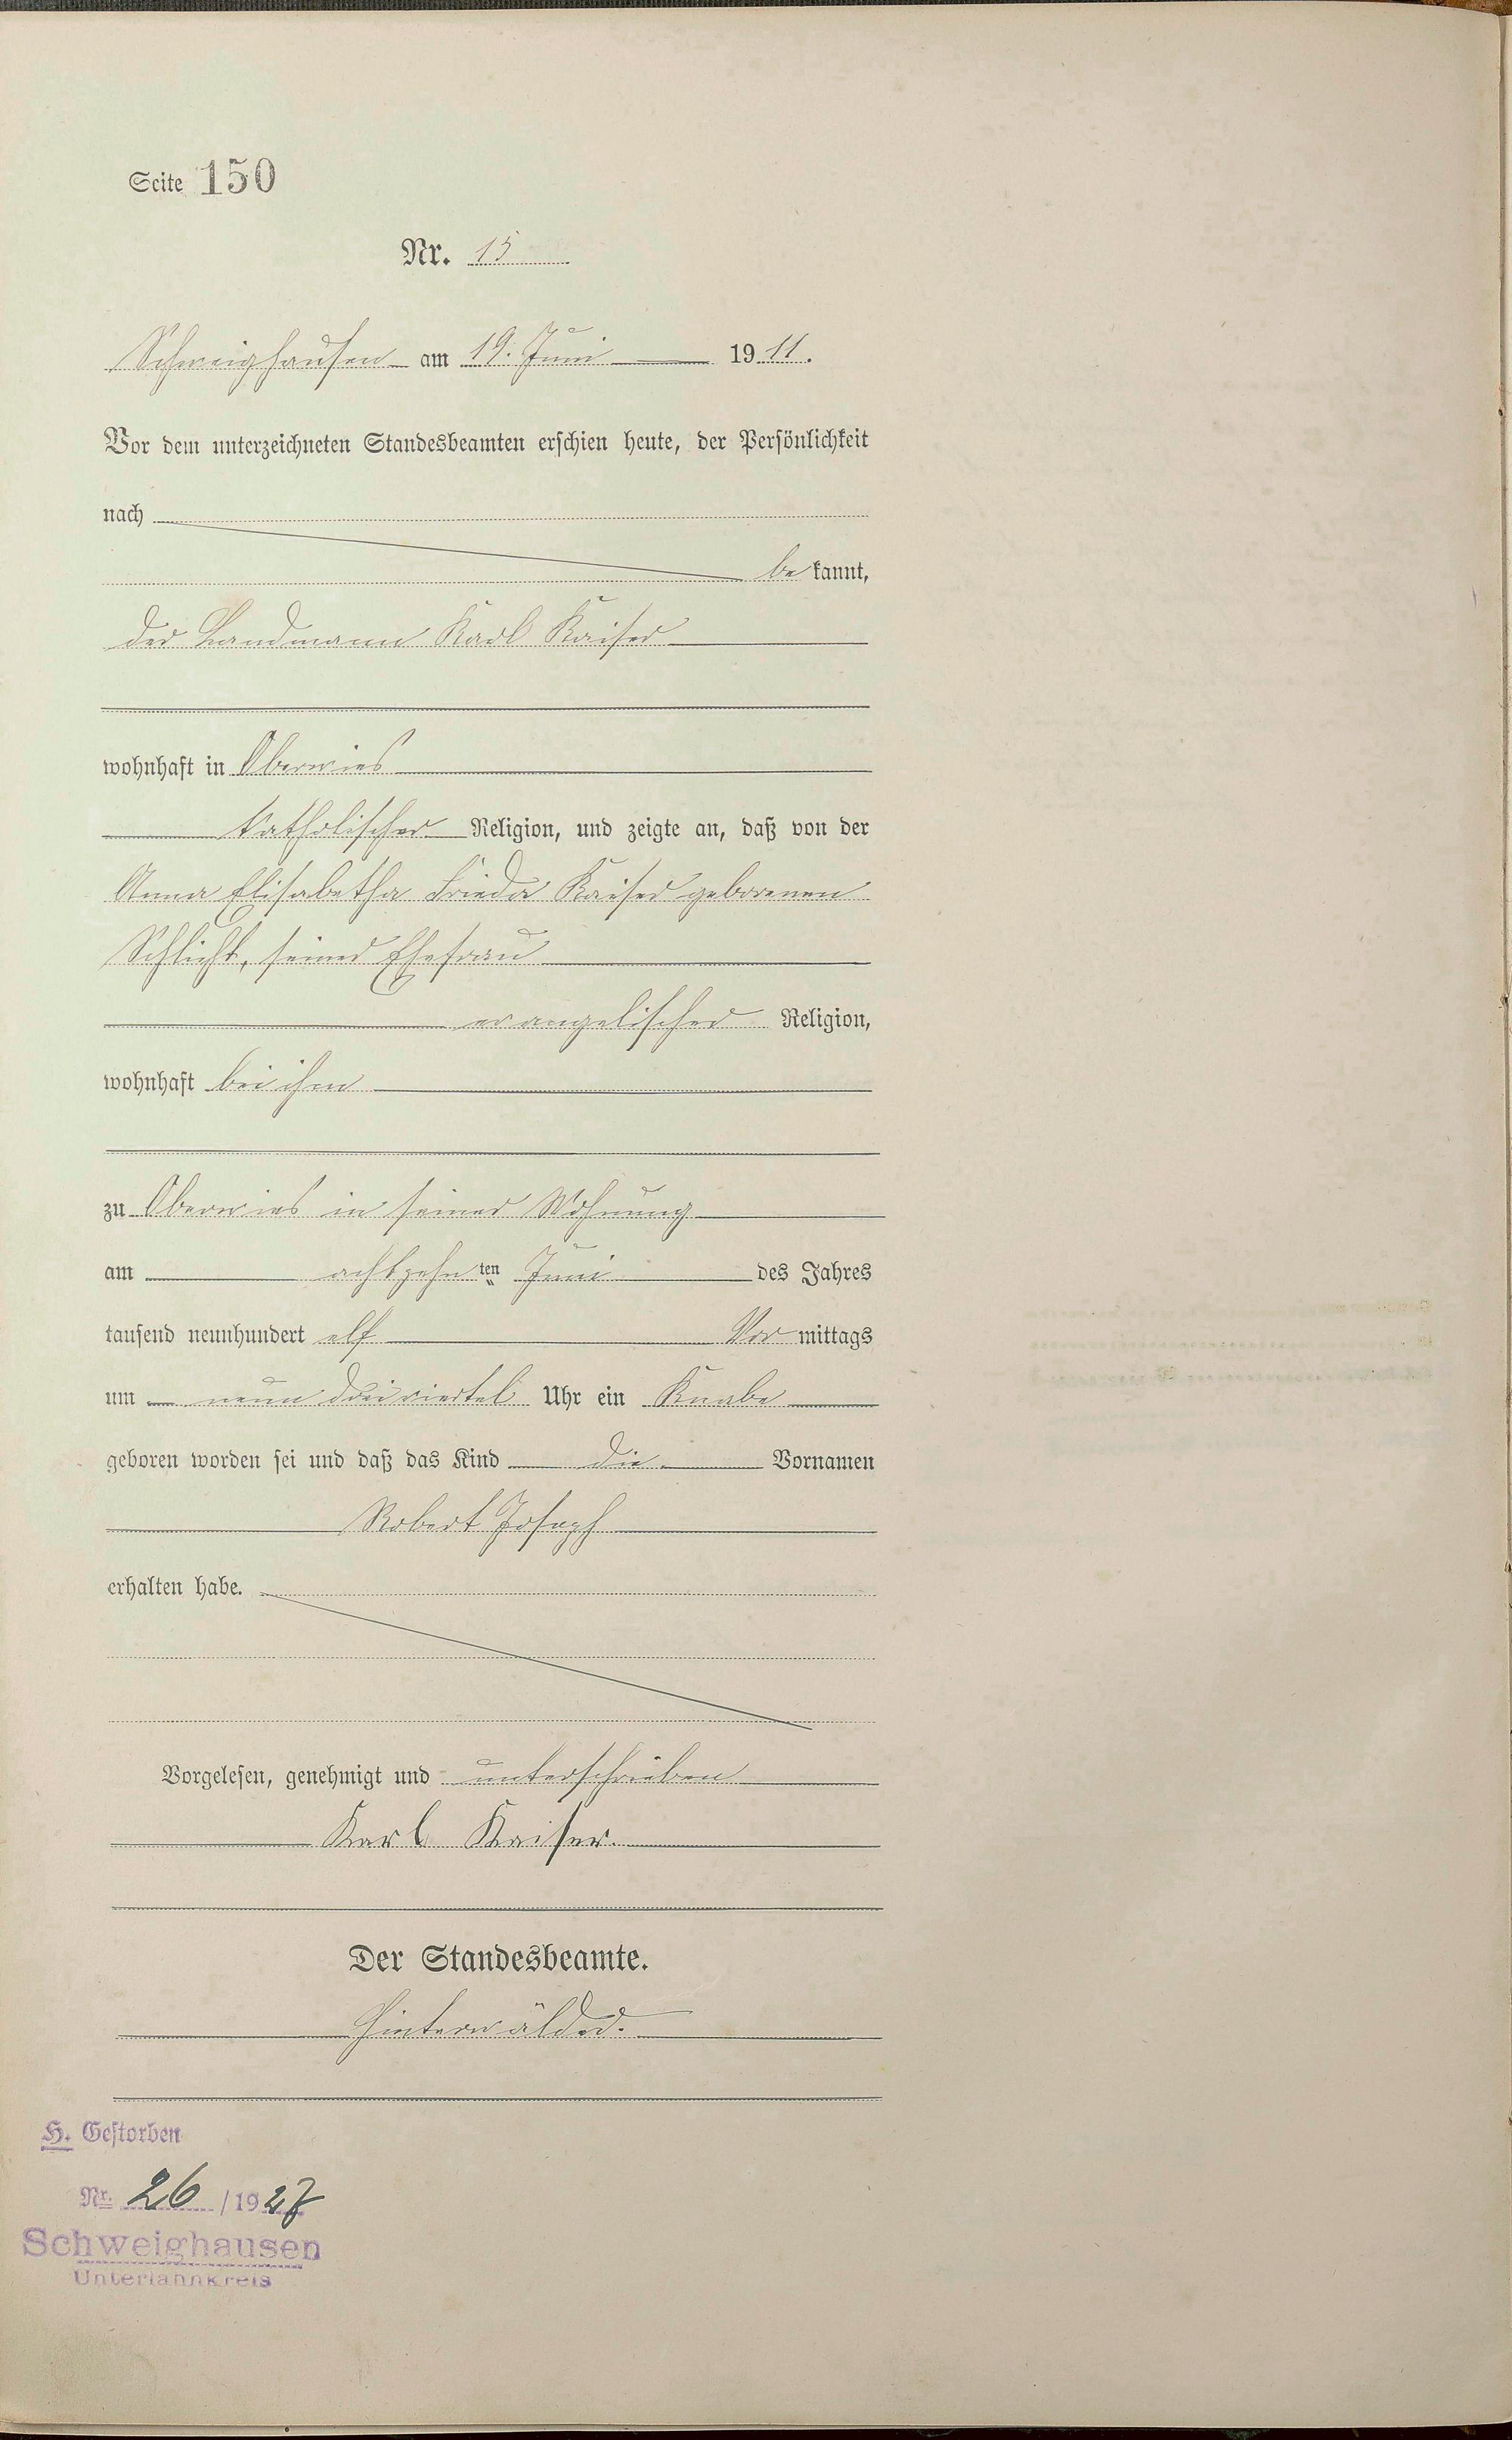 Seite 150
Nr. 15
Schweighausen am 19. Juni 1911.
Vor dem unterzeichneten Standesbeamten erschien heute, der Persönlichkeit
nach
be kannt,
der Landmann Karl Kaiser
wohnhaft in Oberwies
katholischer Religion, und zeigte an, daß von der
Anna Elisabetha Frieda Kaiser geborenen
Schlicht, seiner Ehefrau
evangelischer Religion,
wohnhaft bei ihm
zu Oberwies in seiner Wohnung
am achtzehn ten Juni des Jahres
tausend neunhundert elf Vor mittags
um neun dreiviertel Uhr ein Knabe
geboren worden sei und daß das Kind die Vornamen
Robert Joseph
erhalten habe.
Vorgelesen, genehmigt und unterschrieben
Karl Kaiser.
Der Standesbeamte.
Hinterwälder.
H. Gestorben
Nr. 26 /1927
Schweighausen
Unterlahnkreis